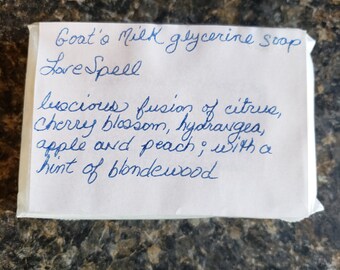 Goat's Milk glycerine soap
Love Spell
luscious fusion of citrus,
cherry blossom, hydrangea,
apple and peach; with a
hint of blondewood